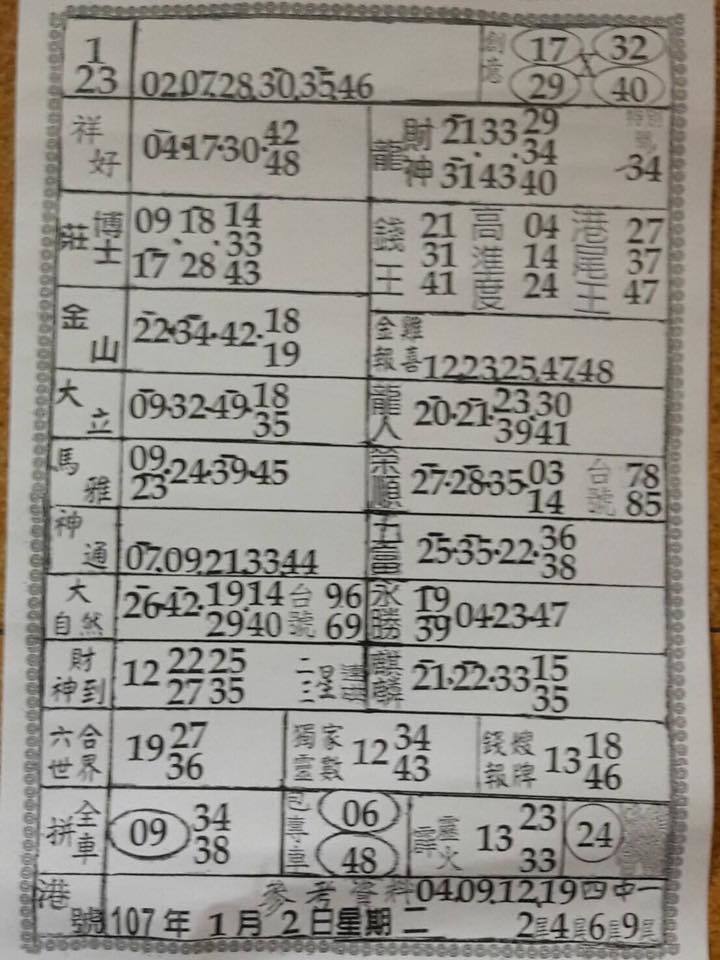 1
23
02.07.28.30.35.46
創意
17 X 32
29 40
祥好
04·17·30·42
48
龍
財神
21 33 29
34
31 43 40
34
莊
博士
09 18 14
33
17 28 43
錢王
21
31
41
高進度
04
14
24
港尾王
27
37
47
金山
22·34·42·18
19
金雞報喜
12.23.25.47.48
大立
09·32·49·18
35
龍人
20·21·23.30
39 41
馬雅
09·24·39·45
23
榮順
27·28·35·03
14
台號
78
85
神通
07.09.21.33.44
五富
25·35·22·36
38
大自然
26·42·19.14
29 40
台號
96
69
永勝
19
39 04·23·47
財神到
12 22 25
27 35
二三星連碰
麒麟
21·22·33 15
35
六合世界
19 27
36
獨家靈數
12 34
43
錢嫂報牌
13 18
46
拼全車
09 34
38
包專車
06
48
霹靈火
13 23
33
24
港號
參考資料 04.09.12.19 四中一
107年 1月 2日星期二 2尾4尾6尾9尾